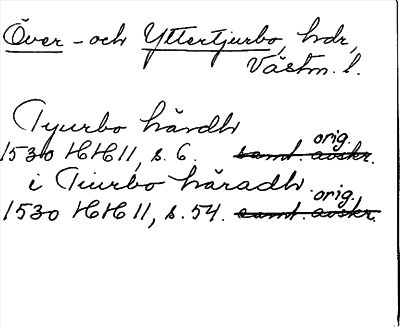 Över- och Yttertjurbo, hdr,
Västm. l.
Tyurbo härdh
1530 HH II, s. 6. samt. avskr. orig.
i Tiurbo häradh.
1530 HH II, s. 54. samt. avskr. orig.